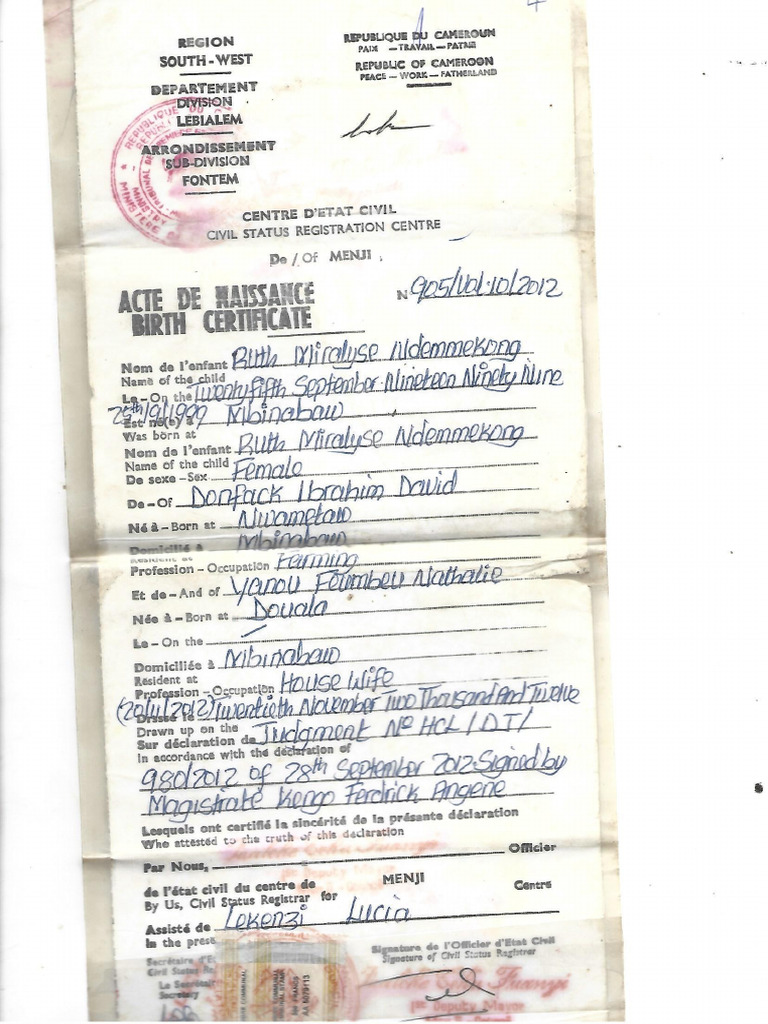 REGION
SOUTH-WEST
DEPARTEMENT
DIVISION
LEBIALEM
ARRONDISSEMENT
SUB-DIVISION
FONTEM
REPUBLIQUE DU CAMEROUN
PAIX — TRAVAIL — PATRIE
REPUBLIC OF CAMEROON
PEACE — WORK — FATHERLAND
CENTRE D'ETAT CIVIL
CIVIL STATUS REGISTRATION CENTRE
De / Of MENJI
ACTE DE NAISSANCE
BIRTH CERTIFICATE
N 905/Vol.10/2012
Nom de l'enfant Ruth Miralyse Ndemmekong
Name of the child
Le - On the Twentyfifth September Nineteen Ninety Nine
25th/9/1999 Mbinabaw
Est né(e) à
Was born at
Nom de l'enfant Ruth Miralyse Ndemmekong
Name of the child
De sexe - Sex Female
De - Of Donfack Ibrahim David
Né à - Born at Nwametaw
Domicilié à Mbinabaw
Resident at
Profession - Occupation Farming
Et de - And of Yanou Feumbeu Nathalie
Née à - Born at Douala
Le - On the
Domiciliée à Mbinabaw
Resident at
Profession - Occupation House Wife
(20/11/2012) Twentieth November Two Thousand And Twelve
Dressé le
Drawn up on the
Sur déclaration de Judgment No HCL/DT/
In accordance with the declaration of
980/2012 of 28th September 2012. Signed by
Magistrate Kengo Ferdrick Angene
Lesquels ont certifié la sincérité de la présente déclaration
Who attested to the truth of this declaration
Par Nous, Officier
de l'état civil du centre de MENJI
By Us, Civil Status Registrar for Centre
Assisté de Lekenzi Lucia
In the pres
Secrétaire d'E
Civil Status Re
Le Secrétai
Secretary
Signature de l'Officier d'Etat Civil
Signature of Civil Status Registrar
1st Deputy Mayor